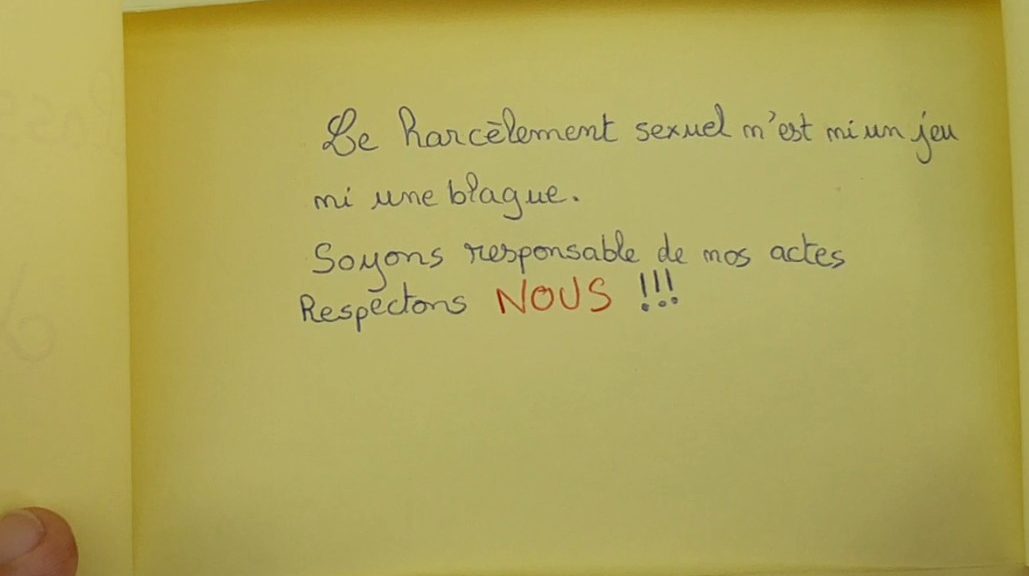 Le harcèlement sexuel n'est ni un jeu
ni une blague.
Soyons responsable de nos actes
Respectons NOUS !!!